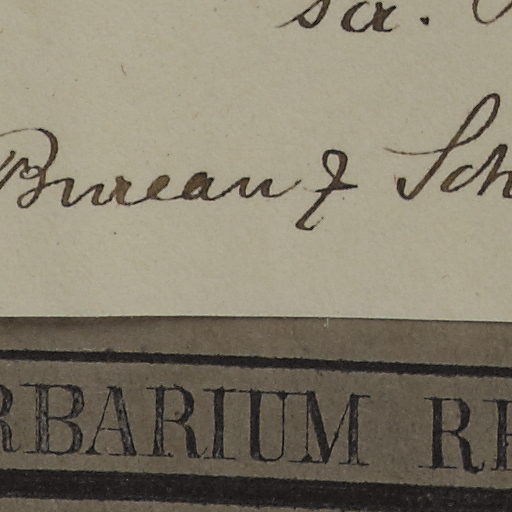 sa.
Bureau & Sch
RBARIUM RE